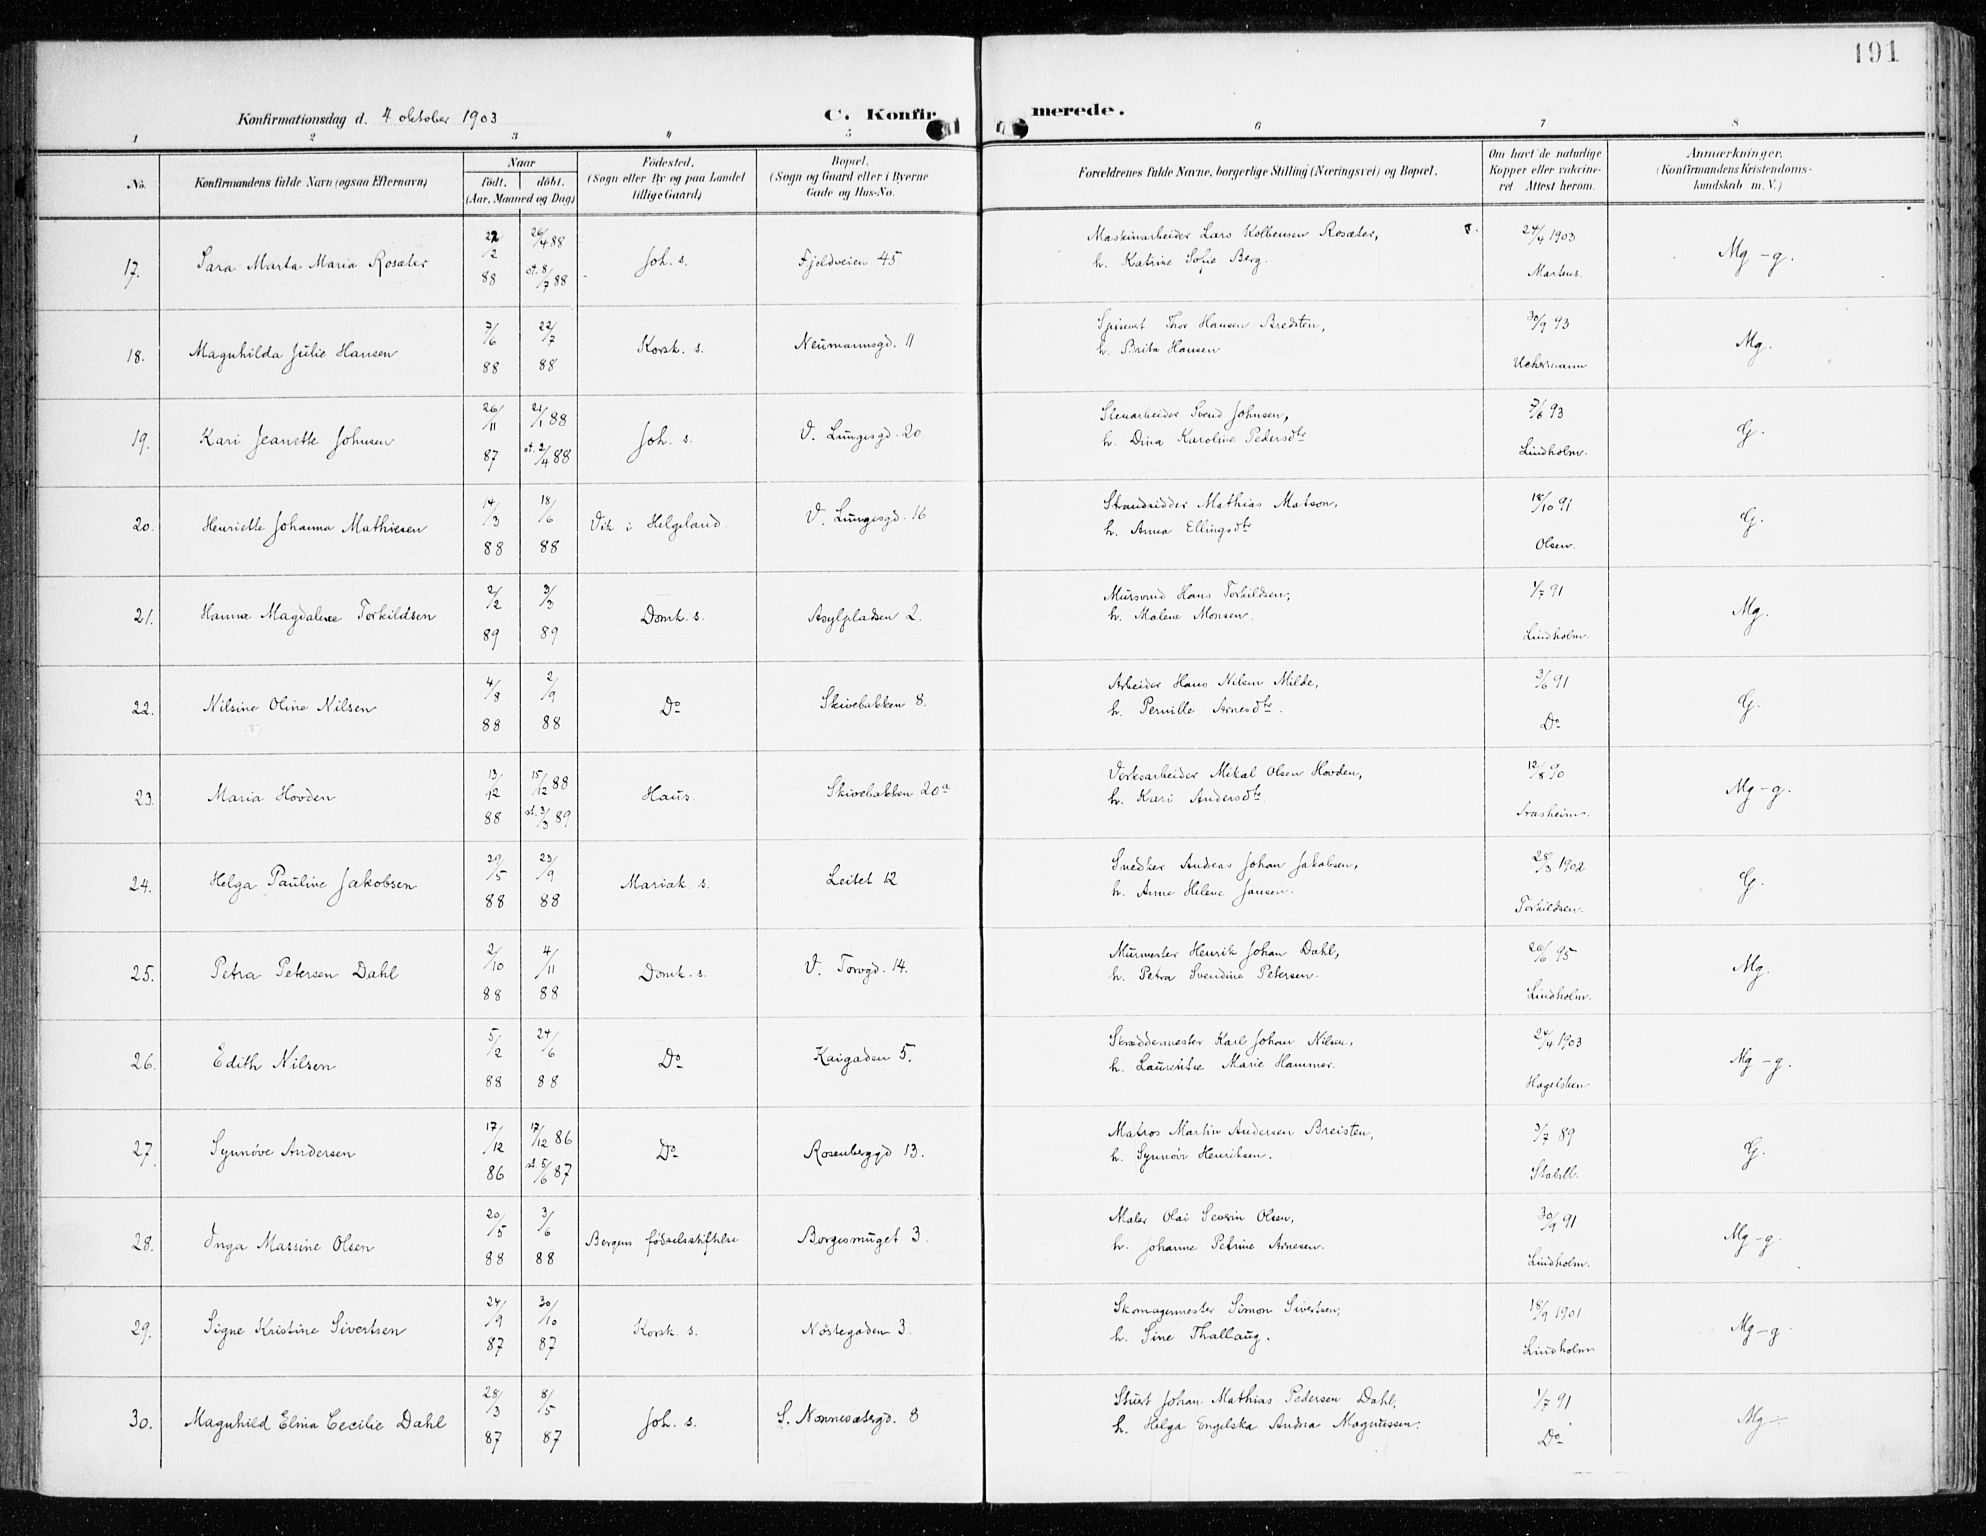 191
Konfirmationsdag d. 4 oktober 1903
C. Konfirmerede.
1 2 3 4 5 6 7 8
No. | Konfirmandens fulde Navn (ogsaa Efternavn) | Naar født. døbt. (Aar, Maaned og Dag) | Fødested. (Sogn eller By og paa Landet tillige Gaard) | Bopæl. (Sogn og Gaard eller i Byerne Gade og Hus-No. | Forældrenes fulde Navne, borgerlige Stilling (Næringsvei) og Bopæl. | Om havt de naturlige Kopper eller vakcineret Attest herom. | Anmærkninger. (Konfirmandens Kristendomskundskab m. V.)
17. Sara Marta Maria Rosæter | 22/2 88 | 26/4 88 st. 8/7 88 | Joh. s. | Fjeldveien 45. | Maskinarbeider Lars Kolbensen Rosæter, h. Katrine Sofie Berg. | 24/4 1903 Martens. | Mg-g.
18. Magnhilda Julie Hansen | 7/6 88 | 22/7 88 | Korsk. s. | Neumannsgd. 11 | Spisevert Thor Hansen Bredsten, h. Brita Hansen | 30/9 93 Uchermann | Mg.
19. Kari Jeanette Johnsen | 26/11 87 | 21/1 88 st. 2/4 88 | Joh. s. | V. Lungesgd. 20 | Stenarbeider Svend Johnsen, h. Dina Karoline Pedersdtr | 7/6 93 Lindholm. | G.
20. Henriette Johanna Mathiesen | 14/3 88 | 18/6 88 | Vik i Helgeland. | V. Lungesgd. 16 | Strandsidder Mathias Matson, h. Anna Ellingsdtr | 18/10 91 Olsen. | G.
21. Hanna Magdalene Torkildsen | 2/2 89 | 3/3 89 | Domk. s. | Asylpladsen 2. | Mursvend Hans Torkildsen, h. Malene Monsen. | 1/7 91 Lindholm. | Mg.
22. Nilsine Oline Nilsen | 4/8 88 | 2/9 88 | Do | Skivebakken 8. | Arbeider Hans Nilsen Milde, h. Pernille Arnesdtr. | 3/6 91 Do | G.
23. Maria Hovden | 13/12 88 | 15/12 88 st. 3/3 89 | Haus. | Skivebakken 20a | Verksarbeider Mikal Olsen Hovden, h. Kari Andersdtr. | 12/8 90 Aasheim. | Mg-g.
24. Helga Pauline Jakobsen | 29/5 88 | 23/9 88 | Mariak. s. | Leitet 12 | Snedker Andreas Johan Jakobsen, h. Anne Helene Jansen. | 28/3 1902 Torkildsen. | G.
25. Petra Petersen Dahl | 2/10 88 | 4/11 88 | Domk. s. | V. Torvgd. 14. | Murmester Henrik Johan Dahl, h. Petra Svendine Petersen. | 26/6 95 Lindholm. | Mg.
26. Edith Nilsen | 5/2 88 | 24/6 88 | Do | Kaigaden 5. | Skræddermester Karl Johan Nilsen, h. Laurentse Marie Hammer. | 24/4 1903 Hagelsteen | Mg-g.
27. Synnøve Andersen | 17/12 86 | 17/12 86 st. 5/6 87 | Do | Rosenberggd 13. | Matros Martin Andersen Breisten, h. Synnøv Henriksen. | 3/7 89 Stabell. | G.
28. Inga Massine Olsen | 20/5 88 | 3/6 88 | Bergens fødselsstiftelse | Borgesmuget 3. | Maler Olai Severin Olsen, h. Johanne Petrine Arnesen. | 30/9 91 Lindholm. | Mg-g.
29. Signe Kristine Sivertsen | 24/9 87 | 30/10 87 | Korsk. s. | Nøstegaden 3. | Skomagermester Simon Sivertsen, h. Sine Thallaug. | 18/9 1901 Lindholm | Mg-g
30. Magnhild Elma Cecilie Dahl | 28/3 87 | 8/5 87 | Joh. s. | S. Nonnesætergd. 8 | Stuert Johan Mathias Pedersen Dahl, h. Helga Engelska Andrea Magnussen. | 1/7 91 Do | Mg-